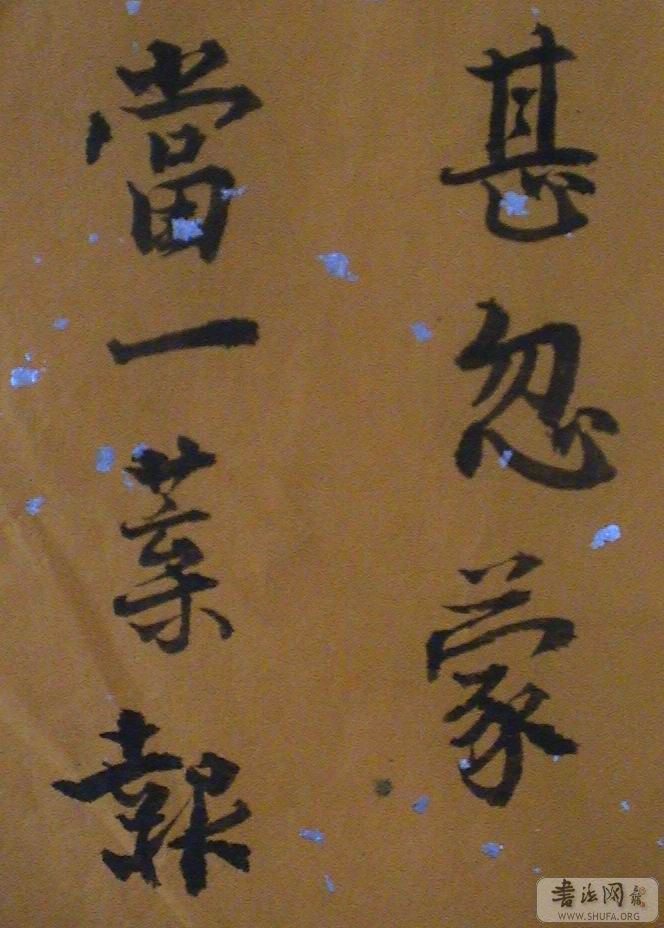 甚忽蒙
當一葉報
書法网
WWW.SHUFA.ORG